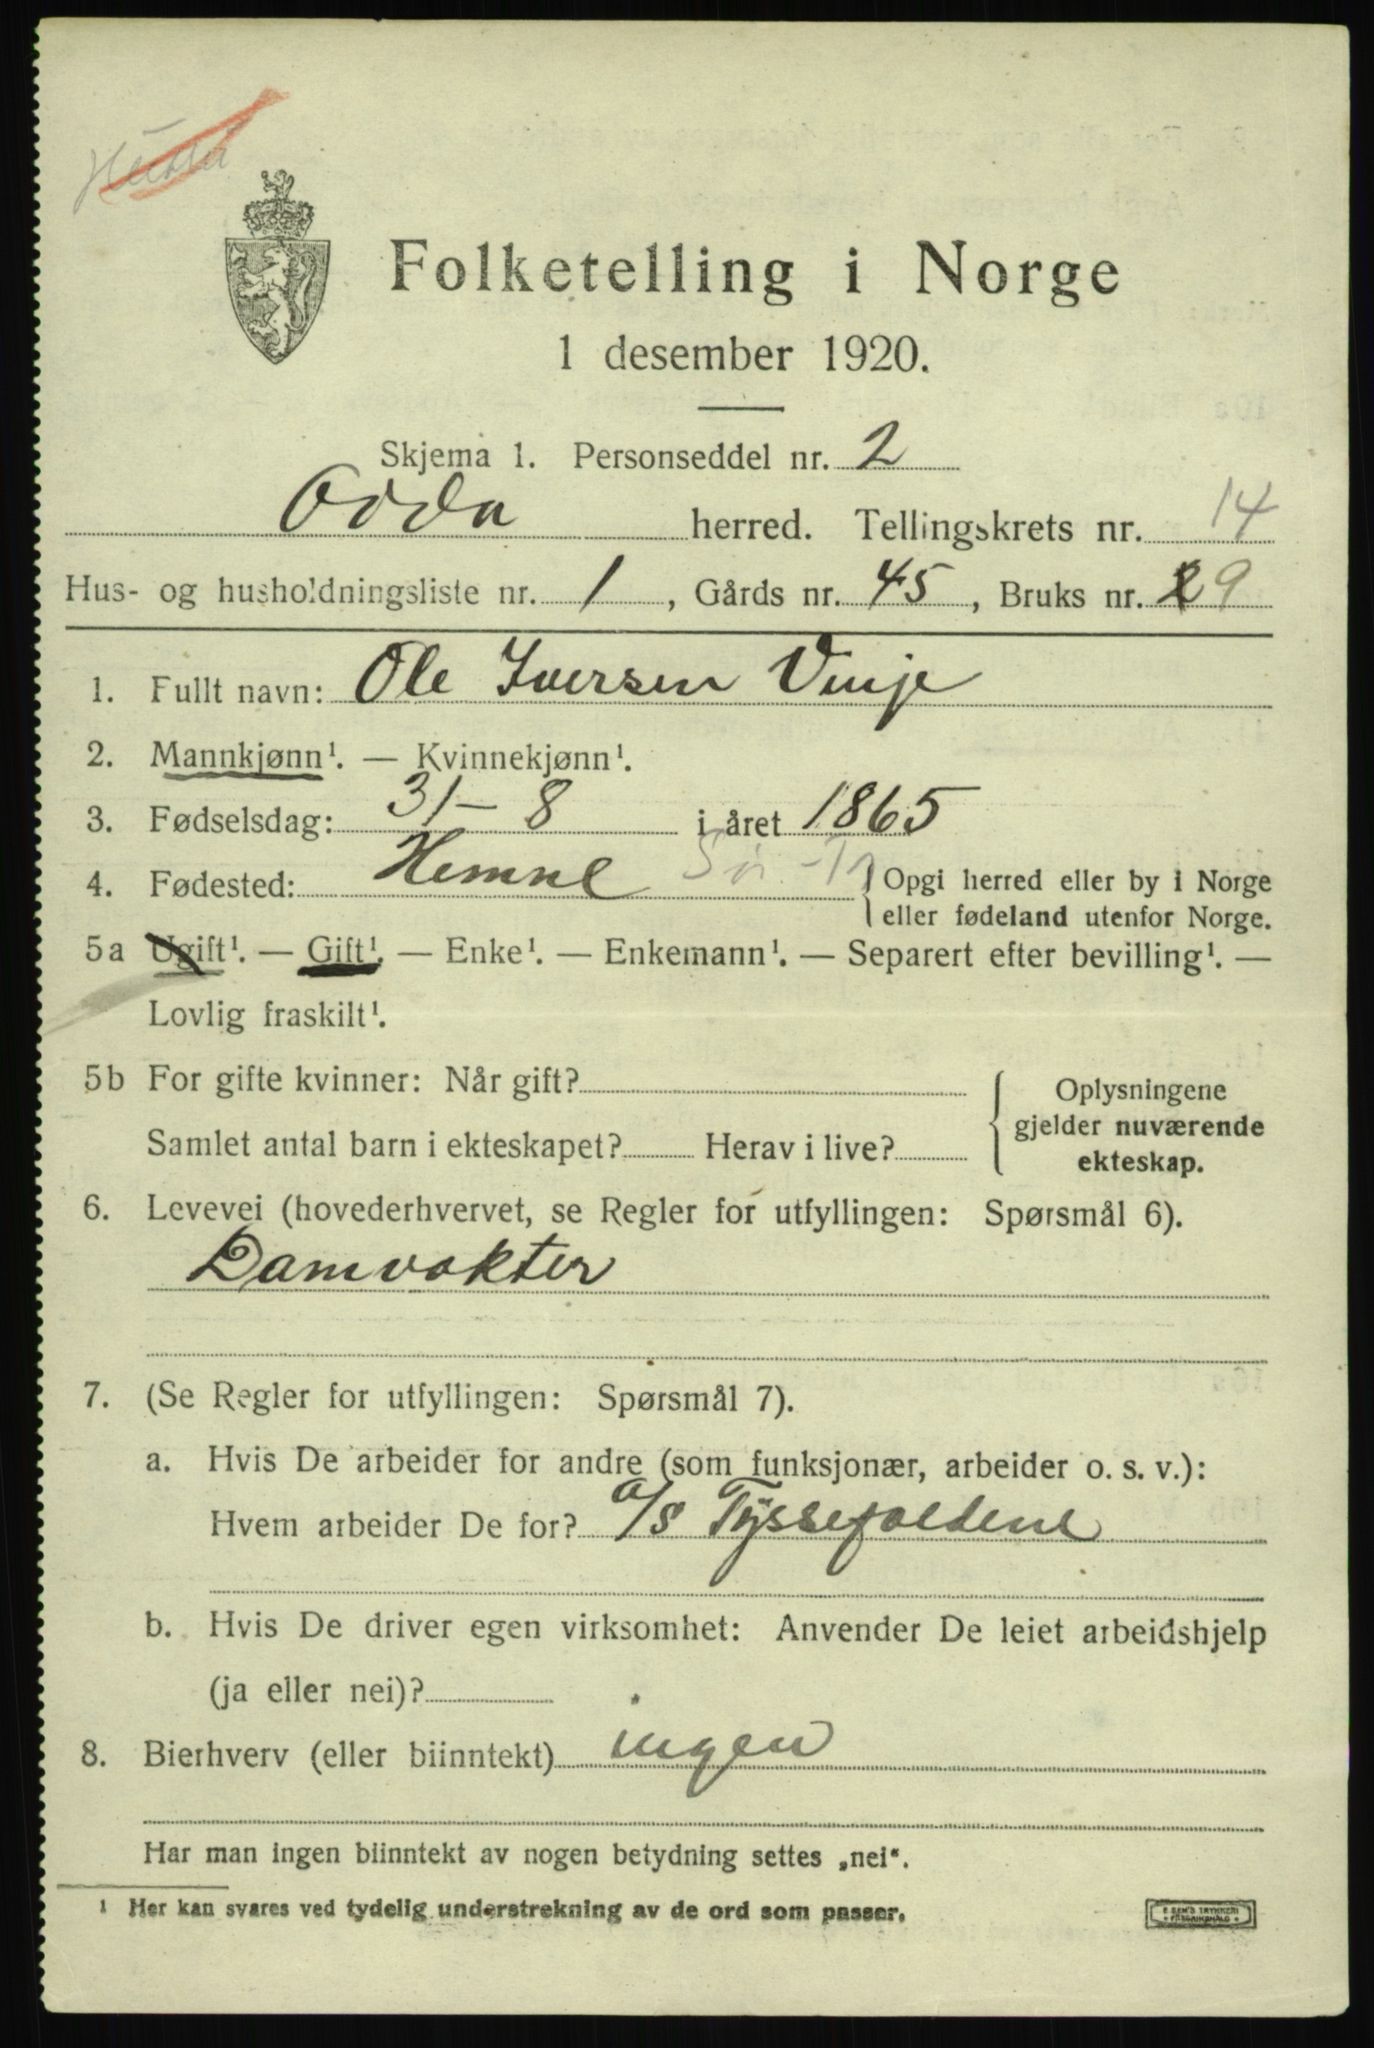 Folketelling i Norge
1 desember 1920.
Skjema 1. Personseddel nr. 2
Odda herred. Tellingskrets nr. 14
Hus- og husholdningsliste nr. 1, Gårds nr. 45, Bruks nr. 29
1. Fullt navn: Ole Iversen Vinje
2. Mannkjønn¹. — Kvinnekjønn¹.
3. Fødselsdag: 31–8 i året 1865
4. Fødested: Hemne Sør-Tr { Opgi herred eller by i Norge
eller fødeland utenfor Norge.
5a Ugift¹. — Gift¹. — Enke¹. — Enkemann¹. — Separert efter bevilling¹. —
Lovlig fraskilt¹.
5b For gifte kvinner: Når gift?
Samlet antal barn i ekteskapet? Herav i live?
Oplysningene
gjelder nuværende
ekteskap.
6. Levevei (hovederhvervet, se Regler for utfyllingen: Spørsmål 6).
Damvokter
7. (Se Regler for utfyllingen: Spørsmål 7).
a. Hvis De arbeider for andre (som funksjonær, arbeider o. s. v.):
Hvem arbeider De for? a/s Tyssefaldene
b. Hvis De driver egen virksomhet: Anvender De leiet arbeidshjelp
(ja eller nei)?
8. Bierhverv (eller biinntekt) ingen
Har man ingen biinntekt av nogen betydning settes „nei“.
¹ Her kan svares ved tydelig understrekning av de ord som passer.